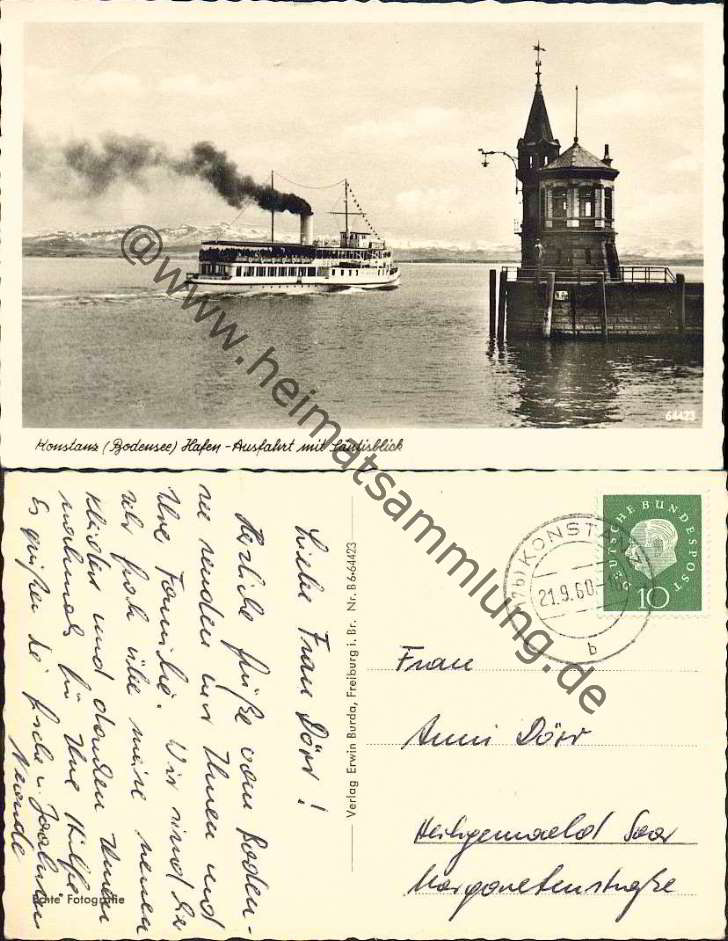 64423
Konstanz (Bodensee) Hafen-Ausfahrt mit Säntisblick
@www.heimatsammlung.de
DEUTSCHE BUNDESPOST
10
(17b) KONSTANZ
21.9.60.
b
Liebe Frau Dörr!
Herzliche Grüße vom Boden-
see senden wir Ihnen und
Ihre Familie. Wir sind
sehr froh über meine neuen
Kleider und danken Ihnen
nochmals für Ihre Hilfe.
Es grüßen Sie
Verlag Erwin Burda, Freiburg i. Br. Nr. B 6-64423
Echte Fotografie
Frau
Anni Dörr
Heiligenwald Saar
Margaretenstraße